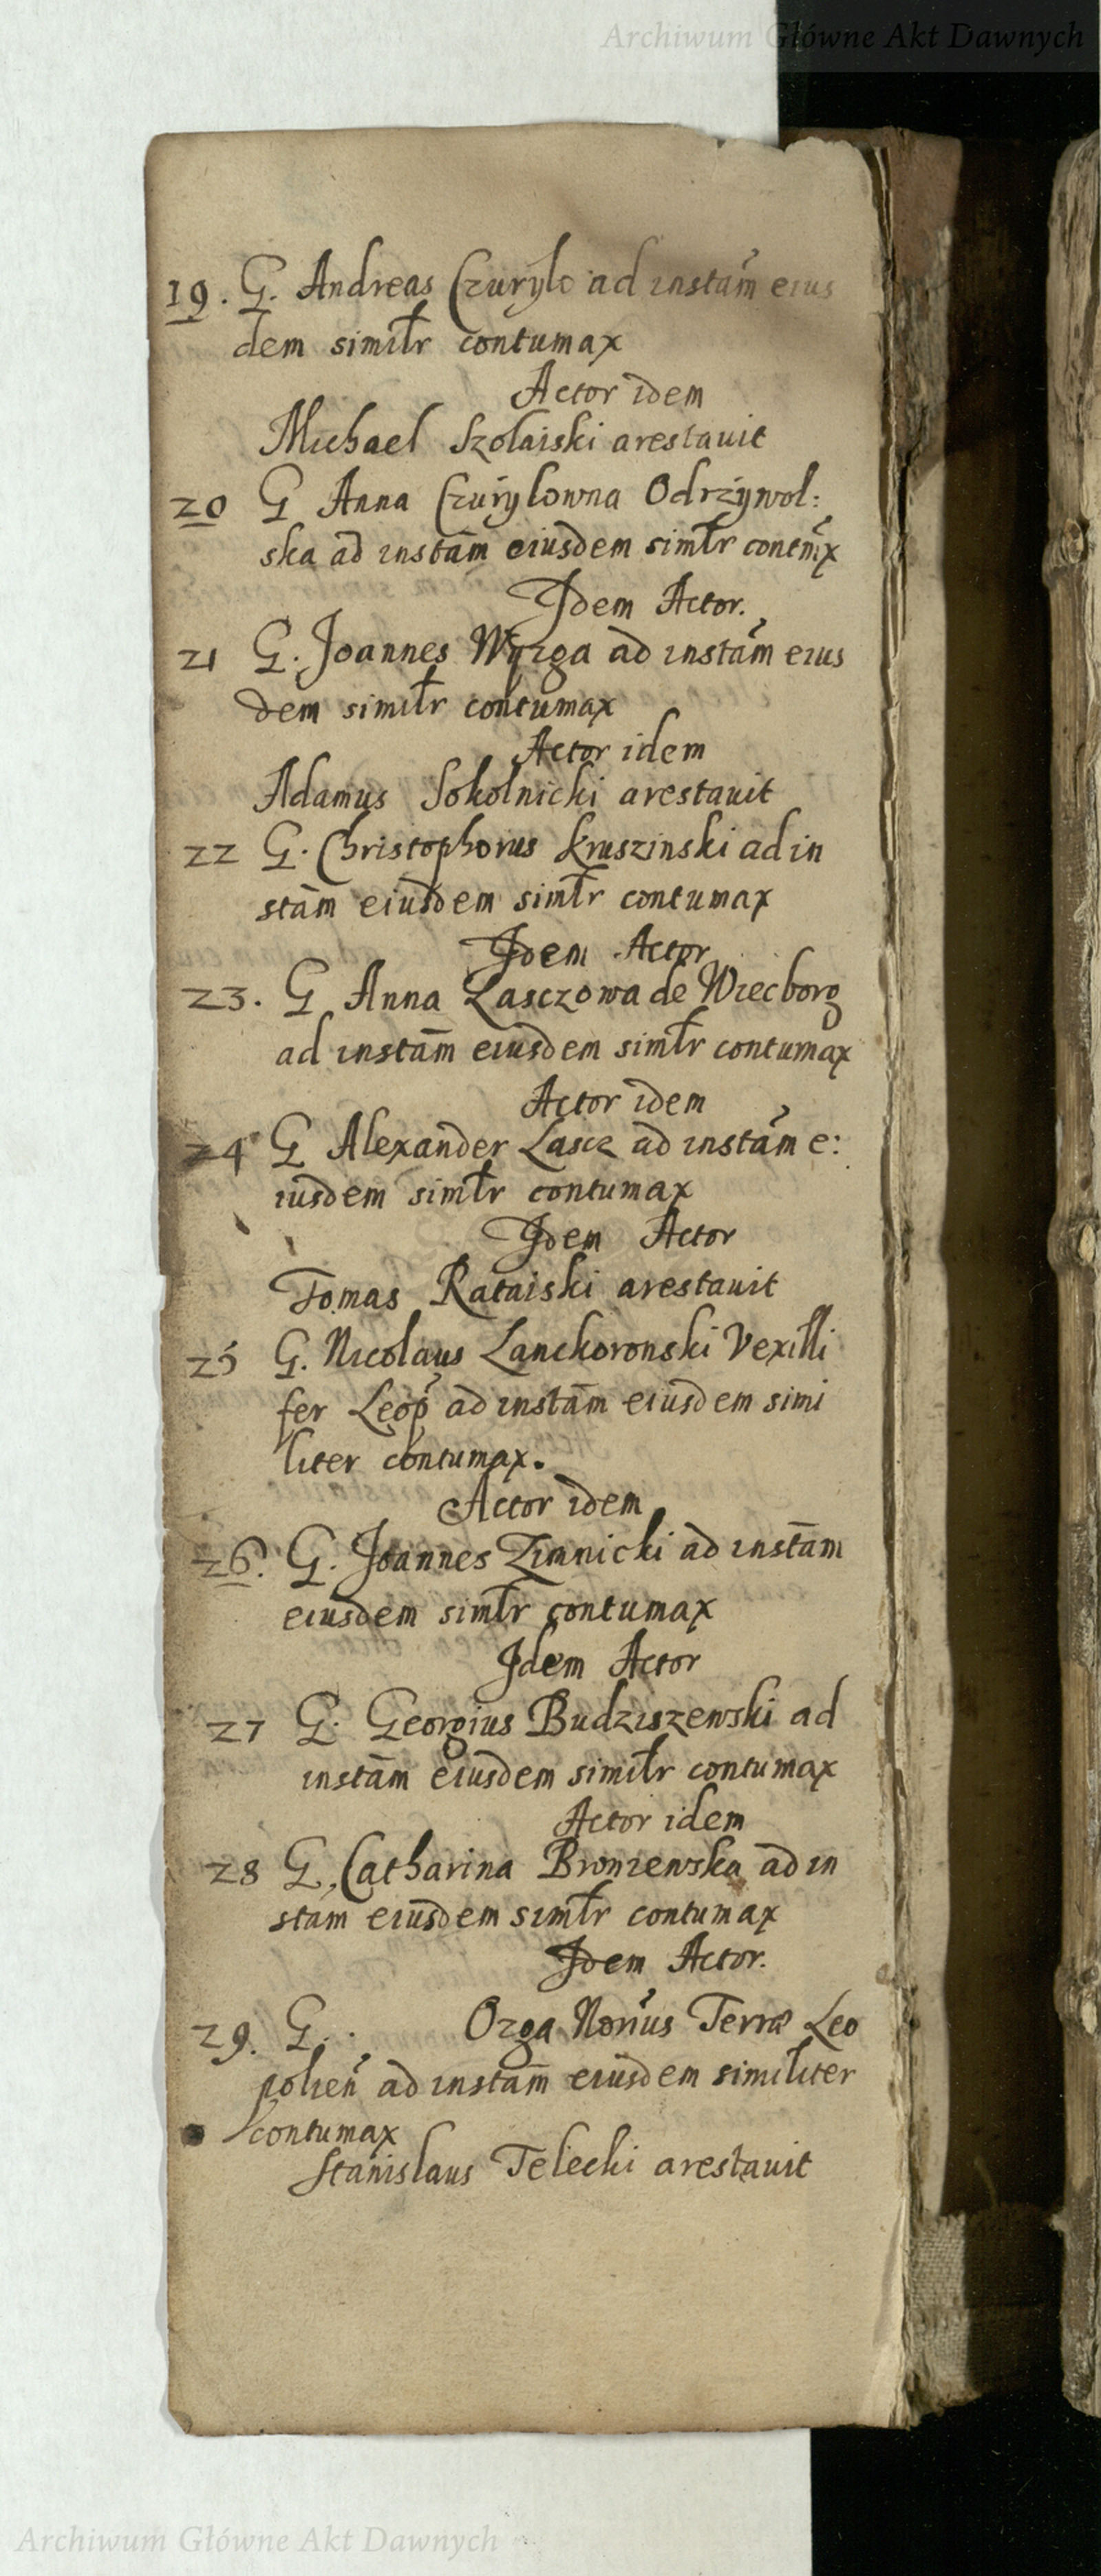 Archiwum Główne Akt Dawnych
19. G. Andreas Czurylo ad instam̃ eius
dem similr contumax
Actor idem
Michael Szolaiski arestauit
20 G Anna Czurylowna Odrzywol:
ska ad instam̃ eiusdem simlr contm̃x
Idem Actor.
21 G. Joannes Wyrga ad instam̃ eius
dem similr contumax
Actor idem
Adamus Sokolnicki arestauit
22 G. Christophorus Kruszinski ad in
stam̃ eiusdem simlr contumax
Idem Actor
23. G Anna Lasczowa de Wiecborg
ad instam̃ eiusdem simlr contumax
Actor idem
24 G Alexander Lascz ad instam̃ e:
iusdem simlr contumax
Idem Actor
Tomas Rataiski arestauit
25 G. Nicolaus Lanckoronski Vexilli
fer Leop̃ ad instam̃ eiusdem simi
liter contumax.
Actor idem
26. G. Joannes Zimnicki ad instam̃
eiusdem simlr contumax
Idem Actor
27 G. Georgius Budziszewski ad
instam̃ eiusdem similr contumax
Actor idem
28 G. Catharina Broniewska ad in
stam eiusdem simlr contumax
Idem Actor.
29. G. Ozga Norius Terræ Leo
polien̄ ad instam̃ eiusdem similiter
contumax
Stanislaus Telecki arestauit
Archiwum Główne Akt Dawnych